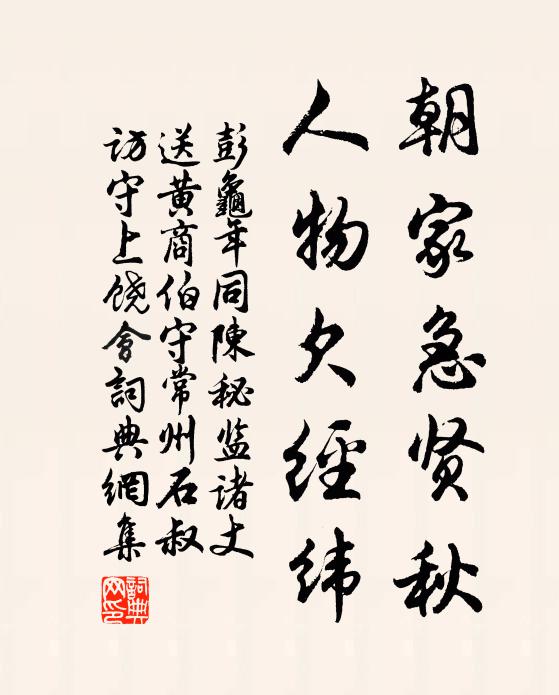 朝家急贤秋
人物欠經纬
彭龜年同陳秘监諸丈
送黄商伯守常州石叔
访守上饶會詞典網集
詞典網印